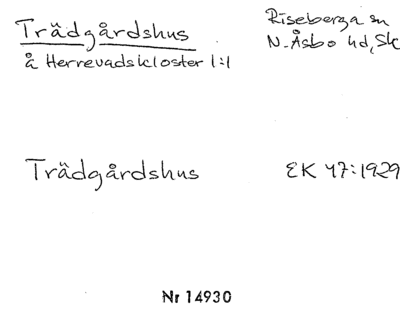 Trädgårdshus
å Herrevadskloster 1:1
Riseberga sn
N. Åsbo hd, Sk
Trädgårdshus
EK 47:1929
Nr 14930